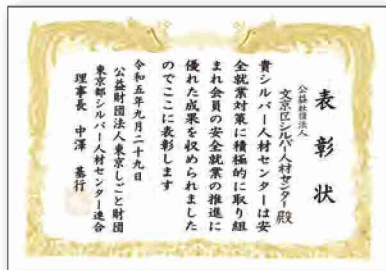 表彰状
公益社団法人
文京区シルバー人材センター殿
貴シルバー人材センターは安
全就業対策に積極的に取り組
まれ会員の安全就業の推進に
優れた成果を収められました
のでここに表彰します
令和五年九月二十九日
公益財団法人東京しごと財団
東京都シルバー人材センター連合
理事長 中澤 基行